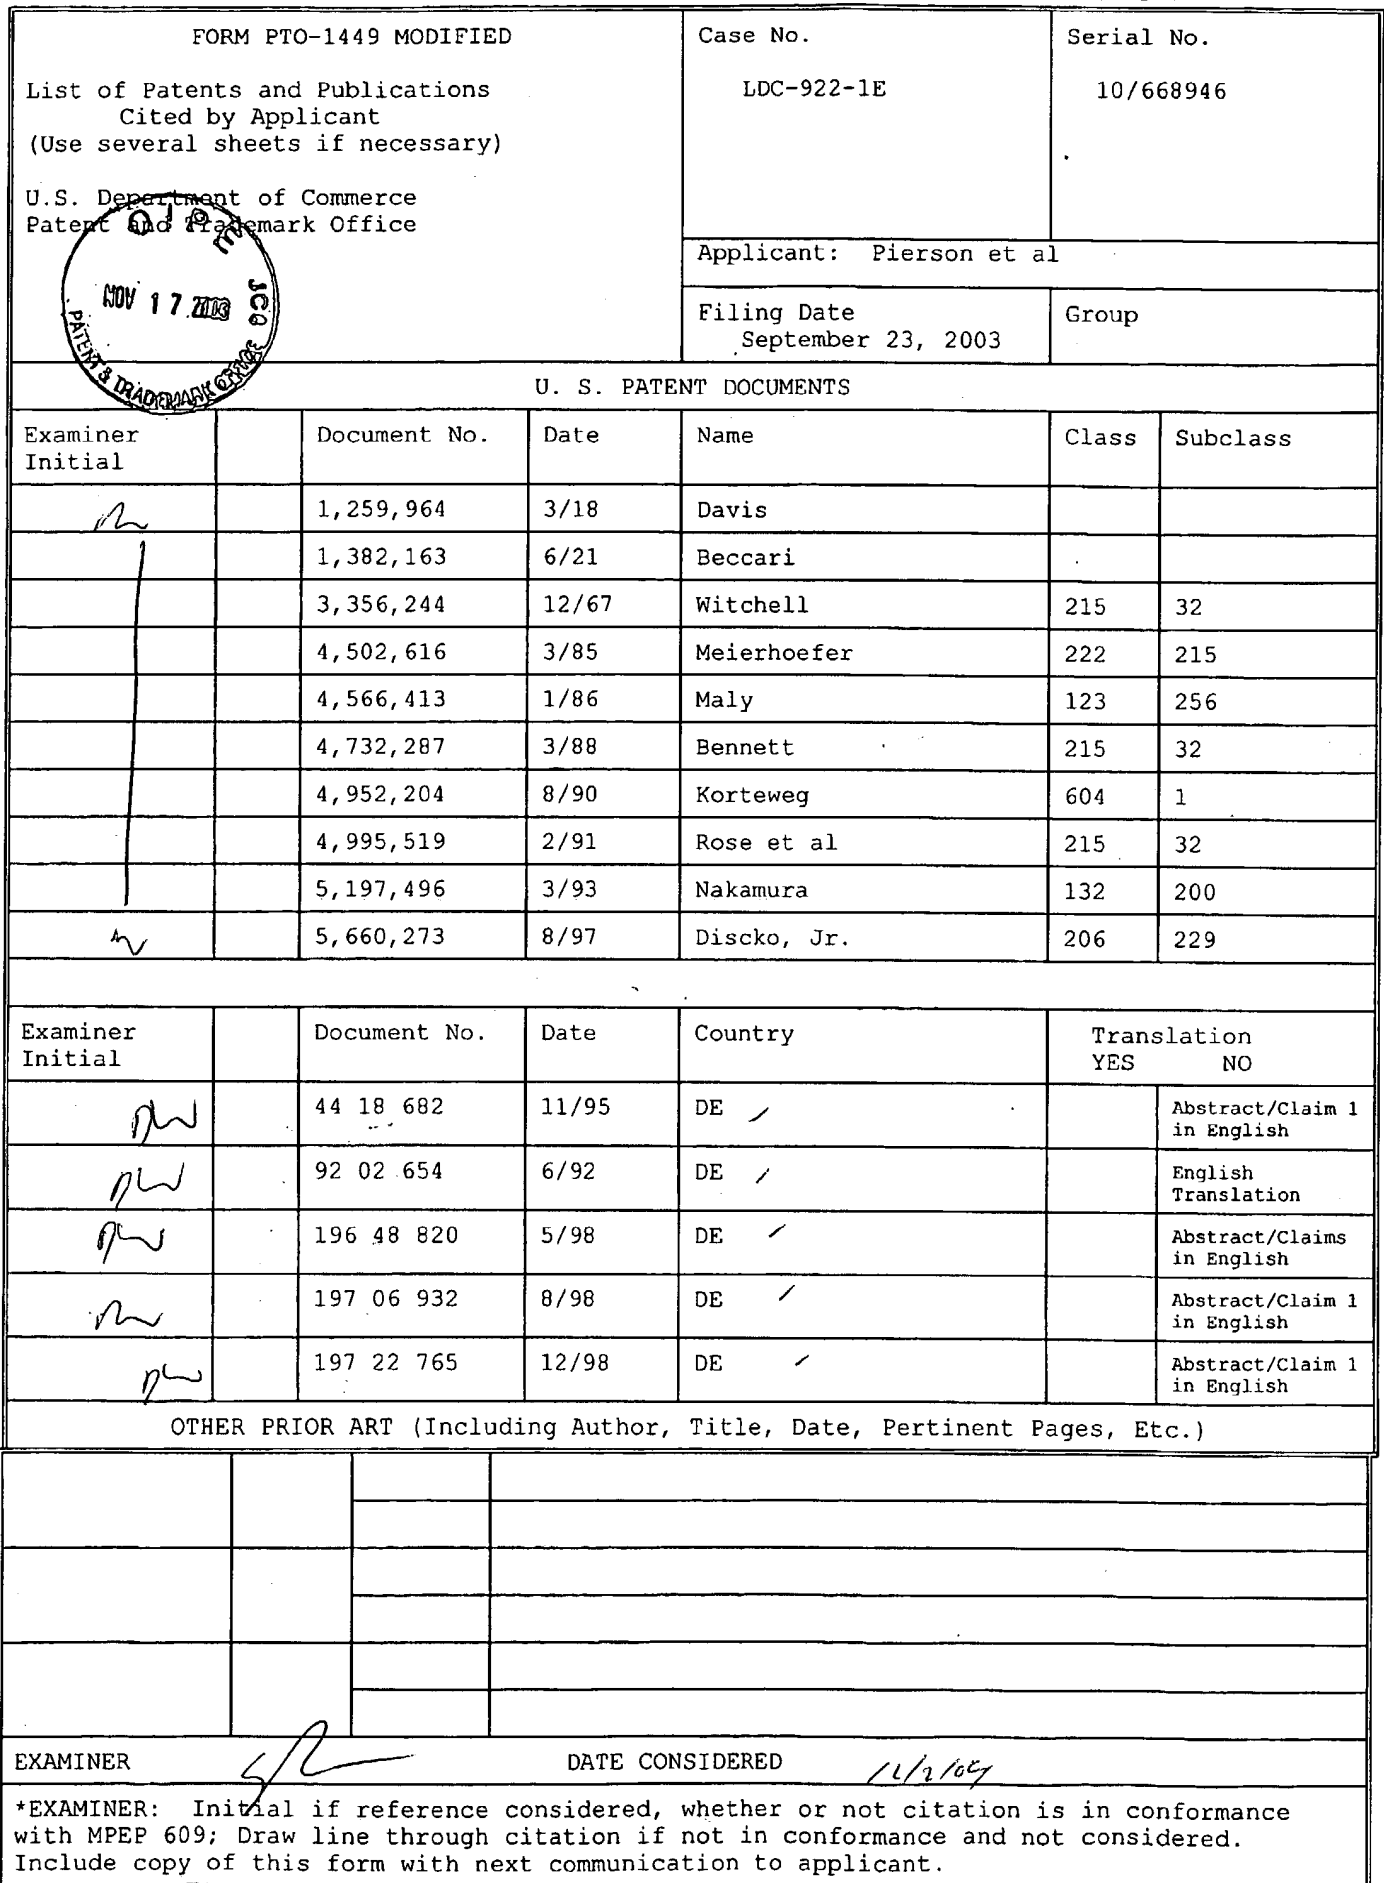 FORM PTO-1449 MODIFIED
List of Patents and Publications
Cited by Applicant
(Use several sheets if necessary)
U.S. Department of Commerce
Patent and Trademark Office
OIPE JC9
NOV 17 2003
PATENT & TRADEMARK OFFICE
Case No.
LDC-922-1E
Serial No.
10/668946
Applicant: Pierson et al
Filing Date
September 23, 2003
Group
U. S. PATENT DOCUMENTS
Examiner Initial Document No. Date Name Class Subclass
1,259,964 3/18 Davis
1,382,163 6/21 Beccari
3,356,244 12/67 Witchell 215 32
4,502,616 3/85 Meierhoefer 222 215
4,566,413 1/86 Maly 123 256
4,732,287 3/88 Bennett 215 32
4,952,204 8/90 Korteweg 604 1
4,995,519 2/91 Rose et al 215 32
5,197,496 3/93 Nakamura 132 200
5,660,273 8/97 Discko, Jr. 206 229
Examiner Initial Document No. Date Country Translation
YES NO
44 18 682 11/95 DE Abstract/Claim 1 in English
92 02 654 6/92 DE English Translation
196 48 820 5/98 DE Abstract/Claims in English
197 06 932 8/98 DE Abstract/Claim 1 in English
197 22 765 12/98 DE Abstract/Claim 1 in English
OTHER PRIOR ART (Including Author, Title, Date, Pertinent Pages, Etc.)
EXAMINER DATE CONSIDERED
*EXAMINER: Initial if reference considered, whether or not citation is in conformance
with MPEP 609; Draw line through citation if not in conformance and not considered.
Include copy of this form with next communication to applicant.